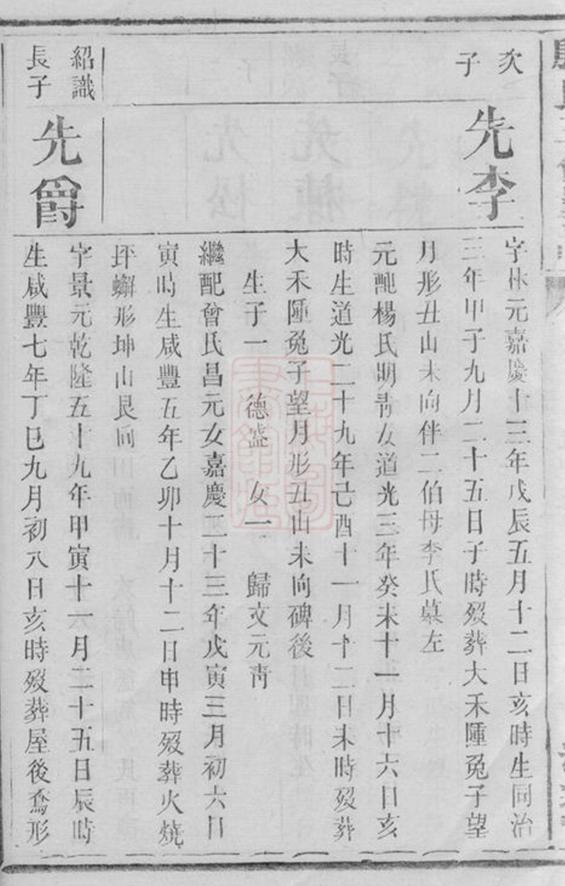 次
子
先李
字林元嘉慶十三年戊辰五月十二日亥時生同治
三年甲子九月二十五日子時歿葬大禾陲兔子望
月形丑山未向伴二伯母李氏墓左
元配楊氏明靑女道光三年癸未十一月十六日亥
時生道光二十九年己酉十一月十二日未時歿葬
大禾陲兔子望月形丑山未向碑後
生子一　德盛　女一　歸文元靑
繼配曾氏昌元女嘉慶二十三年戊寅三月初六日
寅時生咸豐五年乙卯十月十二日申時歿葬火燒
坪蠏形坤山艮向
紹識
長子
先爵
字景元乾隆五十九年甲寅十一月二十五日辰時
生咸豐七年丁巳九月初八日亥時歿葬屋後鴦形